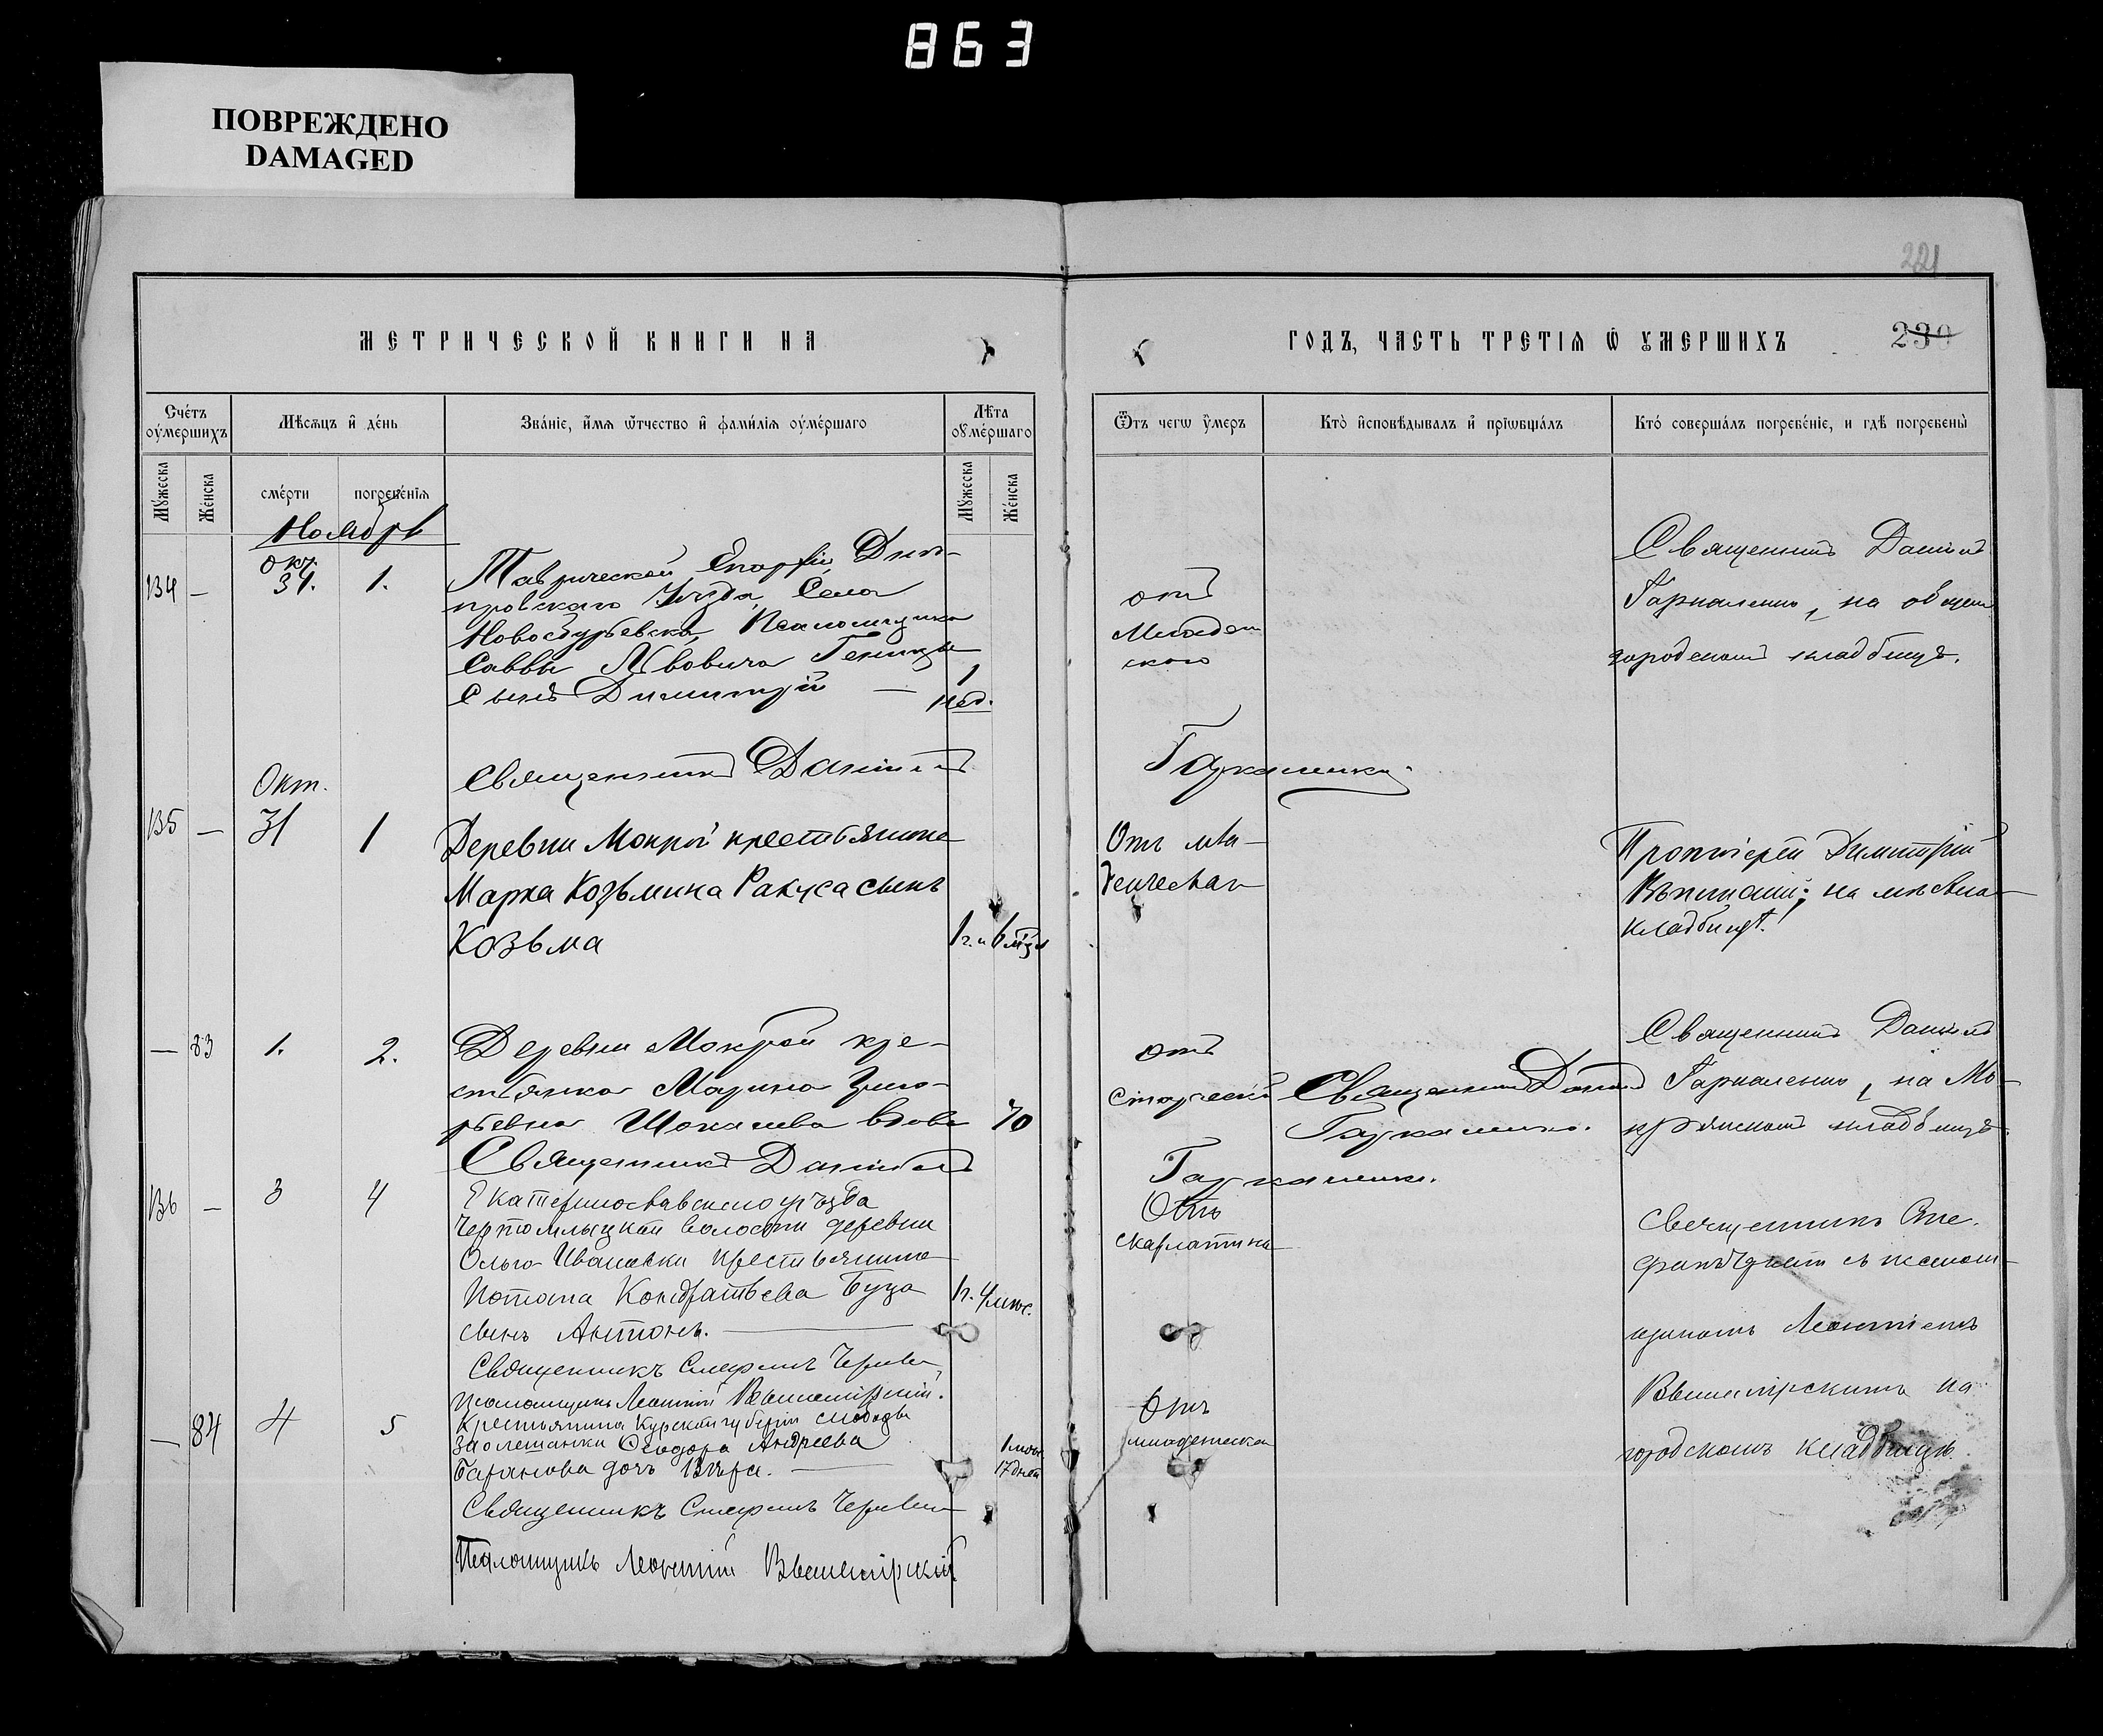 863
ПОВРЕЖДЕНО
DAMAGED
221
МЕТРИЧЕСКОЙ КНИГИ НА
ГОДЪ, ЧАСТЬ ТРЕТІѦ Ѿ ᲂУМЕРШИХЪ
230
Счéтъ ᲂу҆мéршихъ
Мѣ́сѧцъ и҆ дéнь
Звáнїе, и҆́мѧ ѿтчество и҆ фамѝлїѧ ᲂу҆мéршаго
Лѣ́та ᲂу҆мéршаго
Ѿтъ чегѡ ᲂу҆́меръ
Ктò и҆сповѣ́дывалъ и҆ прїѡбщáлъ
Ктó совершáлъ погребéнїе, и гдѣ̀ погребены̀
Мýжеска
Жéнска
смéрти
погребéнїѧ
Мýжеска
Жéнска
Ноябрь
134 — Окт. 31. 1.
Таврической Епархіи, Днѣ-
провскаго Уѣзда, Села
Псаломщика
Саввы Львовича
Сынъ Димитрій —
1 нед.
отъ
Младен
скаго
Священникъ Даніилъ
Гаркаленко, на общем
городскомъ кладбищѣ.
Священникъ Даніилъ Гаркаленко.
135 — Окт. 31 1
Деревни Мокрой крестьянина
Марка Козьмина Ракуса сынъ
Козьма
1 г. и 6 мѣ
Отъ мла-
денческаг
Протоіерей Димитрій
на
кладбищѣ.
— 83 1. 2.
Деревни Мокрой кре-
стьянка Марина Григо-
рьевна вдова
70
отъ
старческой
Священникъ Даніилъ
Гаркаленко.
Священникъ Даніилъ
Гаркаленко, на Мо-
крянскомъ кладбищѣ
Священникъ Даніилъ Гаркаленко.
136 — 3 4
Екатеринославскаго уѣзда
Чертомлыцкой волости деревни
Ольго-Ивановки крестьянина
Потапа Кондратьева Буца
сынъ Антонъ. —
1 г. 4 мѣс.
Отъ
скарлатины
Священникъ Сте-
фанъ съ псалом-
щикомъ Леонтіемъ
на
городскомъ кладбищѣ.
Священникъ Стефанъ
Псаломщикъ Леонтій
— 84 4 5
Крестьянина Курской губерніи слободы
Заолешанки Ѳеодора Андреева
Баранова дочь Вѣра. —
1 мѣс.
17 дней
Отъ
младенческой
Священникъ Стефанъ
Псаломщикъ Леонтій